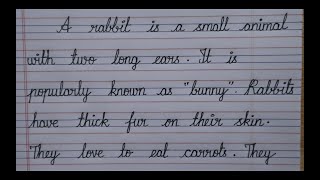 A rabbit is a small animal
with two long ears. It is
popularly known as "bunny". Rabbits
have thick fur on their skin.
They love to eat carrots. They